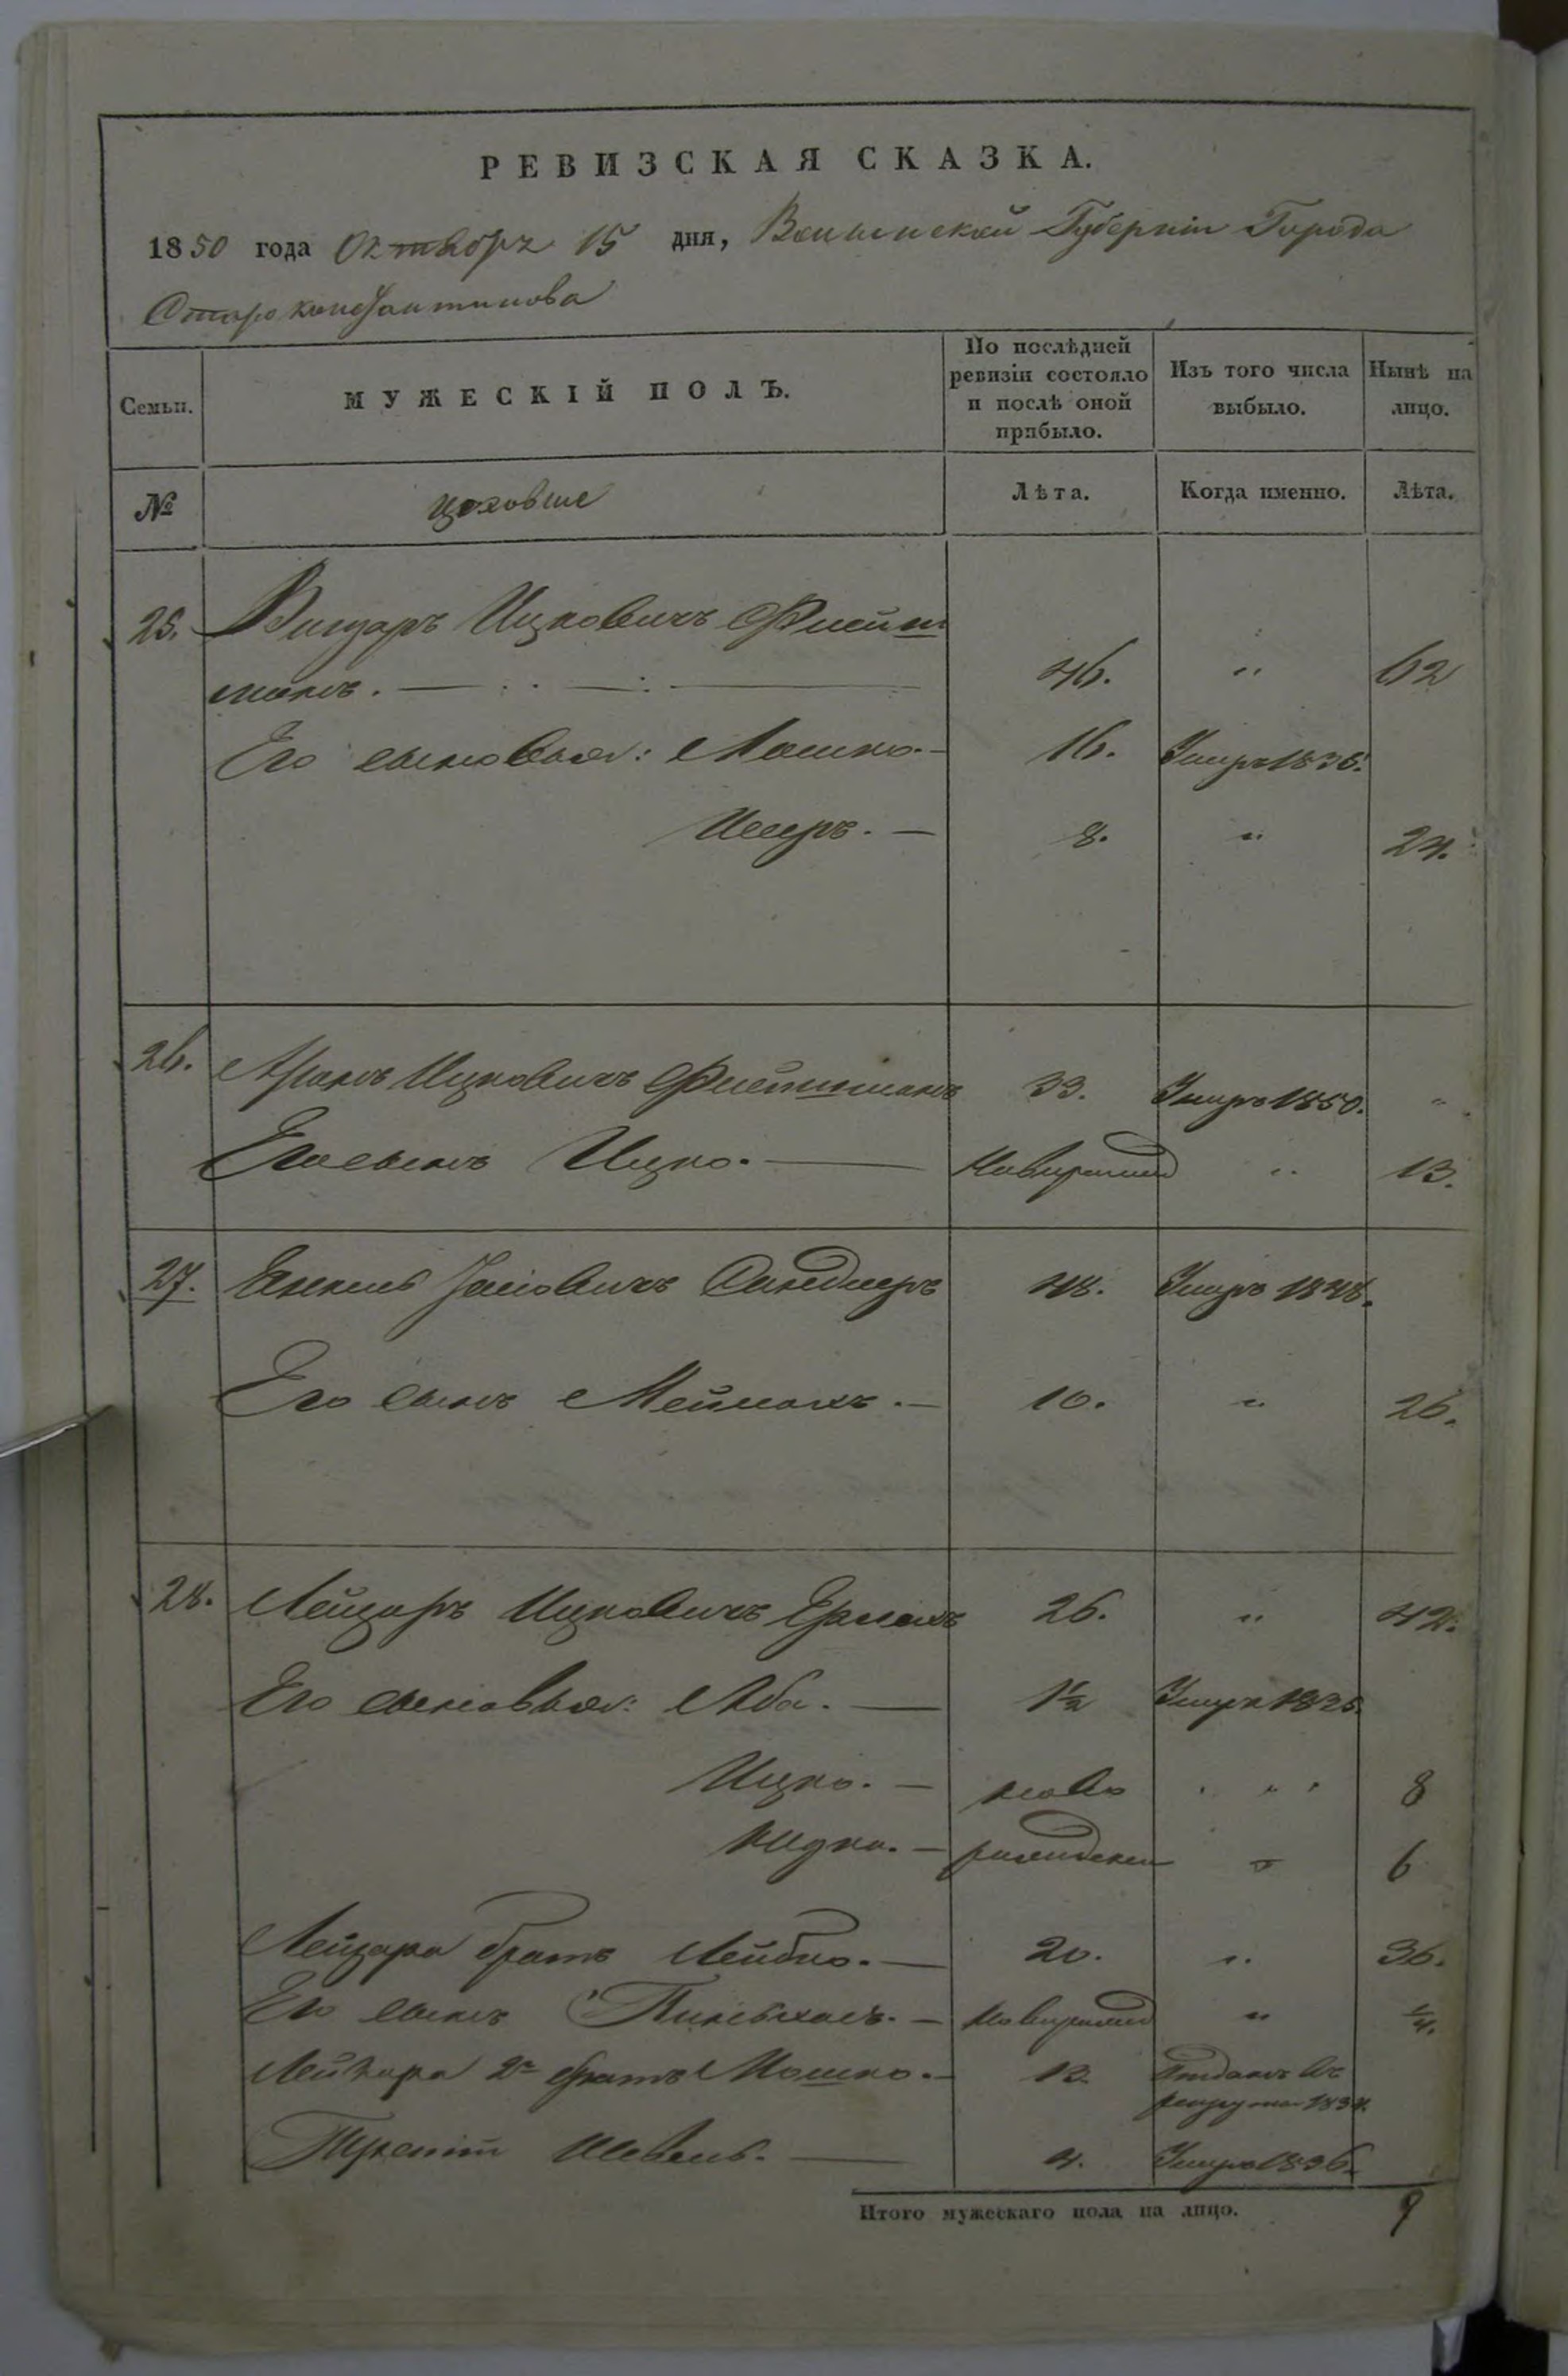 РЕВИЗСКАЯ СКАЗКА.
1850 года Октября 15 дня, Волынской Губерніи Города
Староконстантинова
Семьи. МУЖЕСКІЙ ПОЛЪ. По послѣдней ревизіи состояло и послѣ оной прибыло. Изъ того числа выбыло. Нынѣ на лицо.
№ Лѣта. Когда именно. Лѣта.
25. Ицковичъ Фишт
манъ. 46. " 62
Его сыновья: Мошко. 16. Умеръ 1836.
8. " 24.
26. Аронъ Ицковичъ 33. Умеръ 1850. "
Его сынъ Ицко. Новорожден " 13.
27. Янкель 48. Умеръ 1848.
Его сынъ 10. " 26.
28. Лейзоръ Ицковичъ 26. " 42.
Его сыновья: Аба. 1½ Умеръ
Ицко. ново " 8
Юдко. рожденные " 6
Лейзора братъ Лейбко. 20. " 36.
Его сынъ Пинхасъ. Новорожден " ¼.
Лейзора 2й братъ Мошко. 13. Отданъ въ
рекруты 1834.
Третій 4. Умеръ 1836.
Итого мужескаго пола на лицо. 9